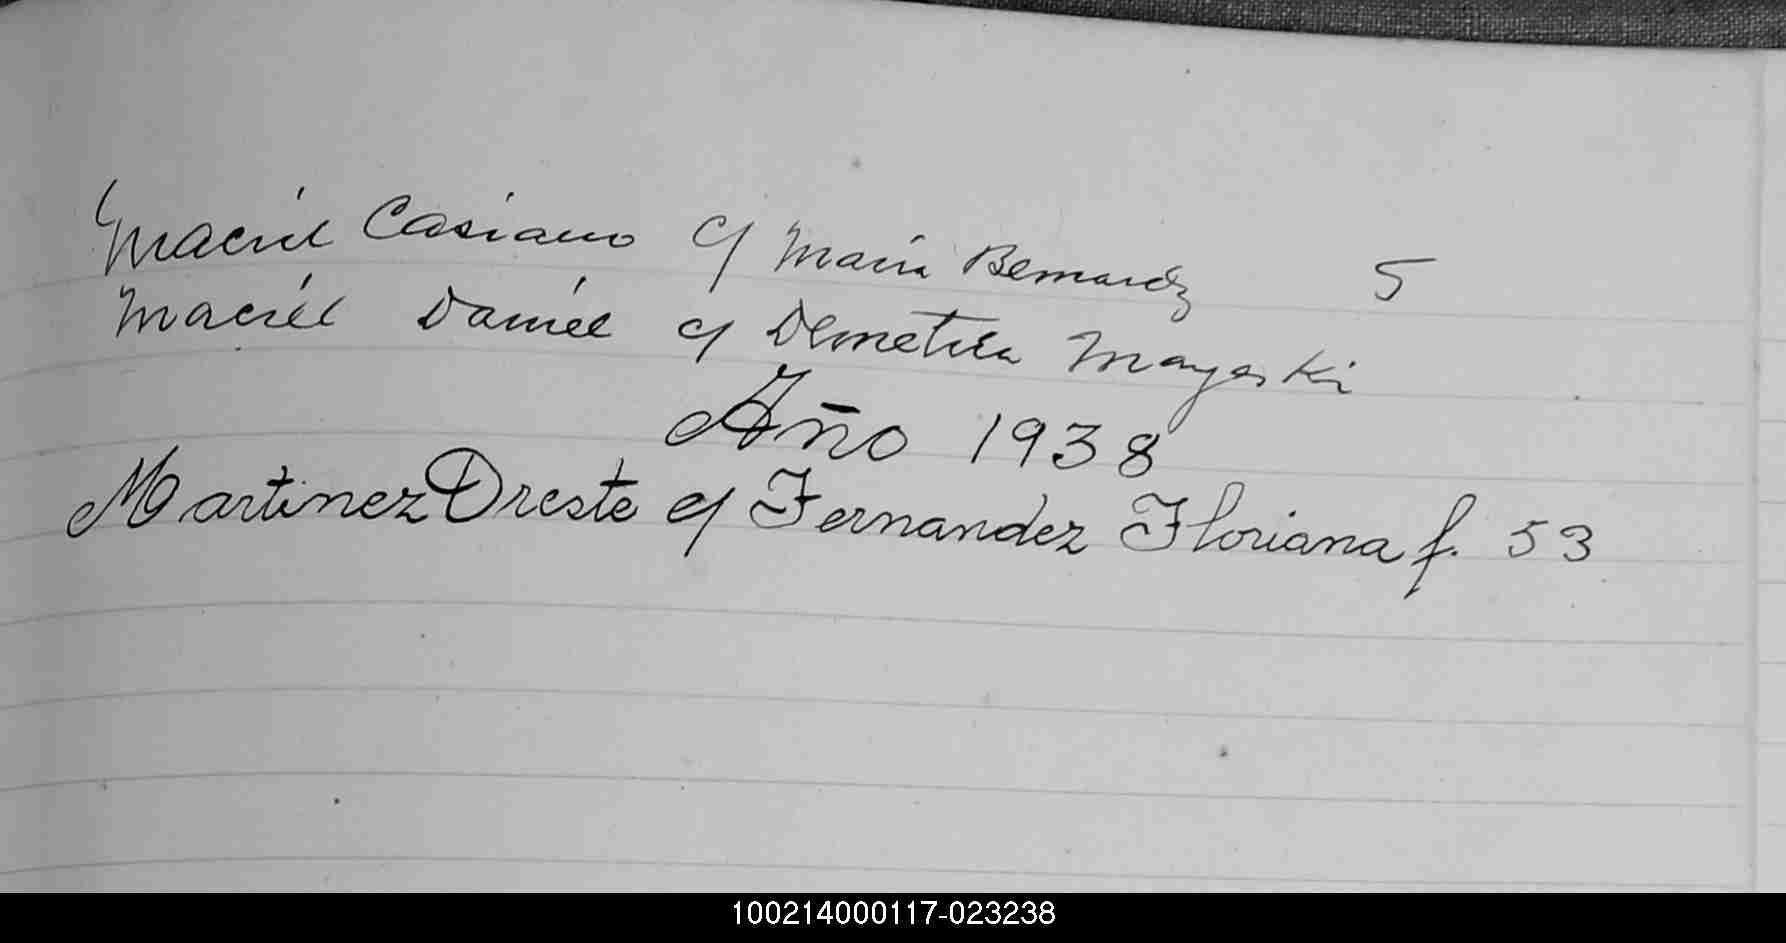 Maciel Casiano c/ Maria Bernardez 5
Maciel Daniel c/ Demetria Mayeski
Año 1938
Martinez Oreste c/ Fernandez Floriana f. 53
100214000117-023238